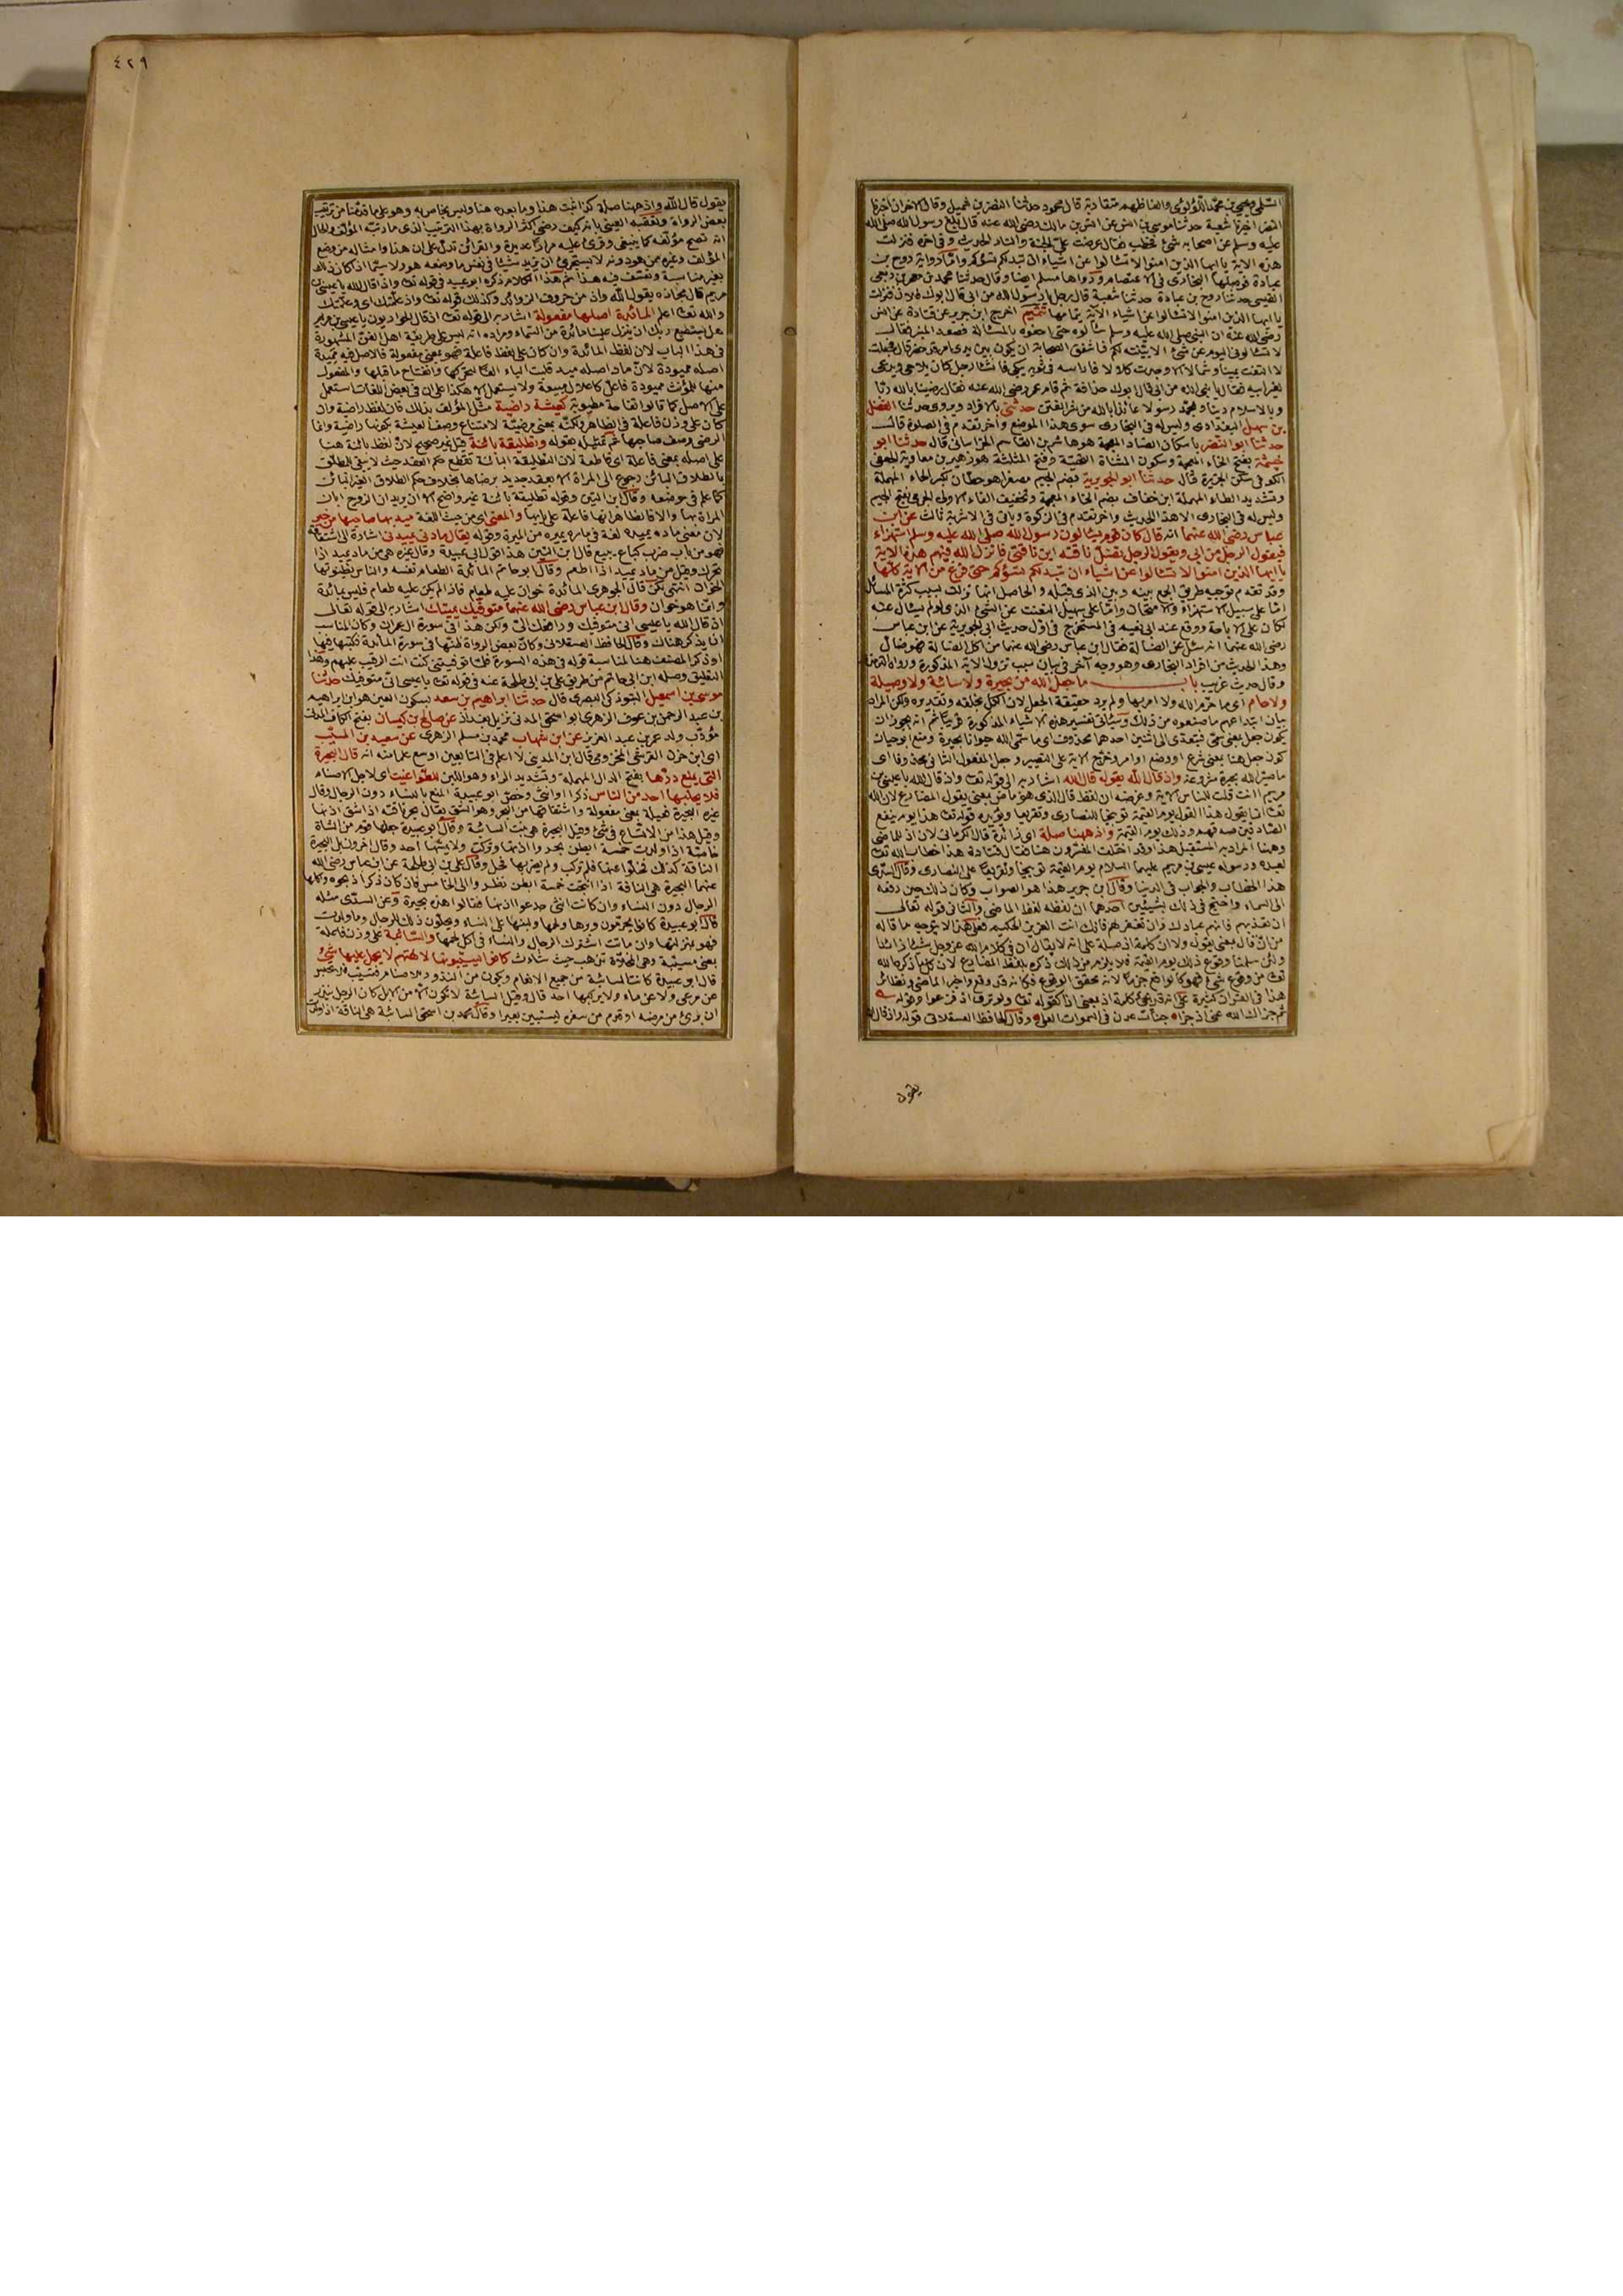 السلمي ويحيى بن محمد اللؤلؤي والفاظهم متقاربة قال محمود حدثنا النضر بن شميل وقال الاخران اخبرنا
النضر اخبرنا شعبة حدثنا موسى بن انس عن انس بن مالك رضي الله عنه قال بلغ رسول الله صلى الله
عليه وسلم عن اصحابه شئ فخطب فقال عرضت علي الجنة والنار الحديث وفي اخره فنزلت
هذه الاية يا ايها الذين امنوا لا تسألوا عن اشياء ان تبدلكم تسؤكم واما رواية روح بن
عبادة فوصلها البخاري في الاعتصام ورواها مسلم ايضا وقال حدثنا محمد بن معمر بن ربعي
القيسي حدثنا روح بن عبادة حدثنا شعبة قال رجل يا رسول الله من ابي قال ابوك فلان فنزلت
يا ايها الذين امنوا لا تسألوا عن اشياء الاية بتمامها تتميم اخرج ابن جرير عن قتادة عن انس
رضي الله عنه ان النبي صلى الله عليه وسلم سألوه حتى احفوه بالمسئالة فصعد المنبر فقال
لا تسألوني اليوم عن شئ الا بينته لكم فاشفق الصحابة ان يكون بين يدي امر قد حضر قال فجعلت
لا التفت يمينا وشمالا الا وجدت كلا لافا راسه في ثوبه يبكي فانشأ رجل كان يلاحى ويدعى
لغير ابيه فقال يا نبي الله من ابي قال ابوك حذافة ثم قام عمر رضي الله عنه فقال رضينا بالله ربا
وبالاسلام دينا وبمحمد رسولا عائذا بالله من شر الفتن حدثني بالافراد ويروى حدثنا الفضل
بن سهل البغدادي وليس له في البخاري سوى هذا الموضع واخر تقدم في الصلوة قال
حدثنا ابو النضر باسكان الضاد المعجمة هو هاشم بن القاسم الخراساني قال حدثنا ابو
خيثمة بفتح الخاء المعجمة وسكون المثناة التحتية وفتح المثلثة هو زهير بن معاوية الجعفي
الكوفي سكن الجزيرة قال حدثنا ابو الجويرية بضم الجيم مصغرا هو حطان بكسر الحاء المهملة
وتشديد الطاء المهملة ابن خفاف بضم الخاء المعجمة وتخفيف الفاء الاولى الجرمي بفتح الجيم
وليس له في البخاري الا هذا الحديث واخر تقدم في الزكوة وياتي في الاشربة ثالث عن ابن
عباس رضي الله عنهما انه قال كان قوم يسألون رسول الله صلى الله عليه وسلم استهزاء
فيقول الرجل من ابي ويقول الرجل تضل ناقته اين ناقتي فانزل الله فيهم هذه الاية
يا ايها الذين امنوا لا تسألوا عن اشياء ان تبدلكم تسؤكم حتى فرغ من الاية كلها
وقد تقدم توجيه طريق الجمع بينه وبين الذي قبله والحاصل انها نزلت بسبب كثرة المسائل
اما على سبيل الاستهزاء والامتحان واما على سبيل التعنت عن الشئ الذي لو لم يسال عنه
لكان على الاباحة ووقع عند ابي نعيم في المستخرج في اول حديث ابي الجويرية عن ابن عباس
رضي الله عنهما انه سئل عن الضالة فقال ابن عباس رضي الله عنهما من اكل الضالة فهو ضال
وهذا الحديث من افراد البخاري وهو وجه آخر في بيان سبب نزول الاية المذكورة ورواه الترمذي
وقال حديث غريب باب ما جعل الله من بحيرة ولا سائبة ولا وصيلة
ولا حام اي ما حرم الله ولا امر بها ولم يرد حقيقة الجعل لان الكل بخلقه وتقديره ولكن المراد
بيان ابتداعهم ما صنعوه من ذلك وسيأتي تفسير هذه الاشياء المذكورة قريبا ثم انه يجوز ان
يكون جعل بمعنى سمى فيتعدى الى اثنين احدهما محذوف اي ما سمى الله حيوانا بحيرة ومنع ابو حيان
كون جعل هنا بمعنى شرع او وضع او امر وخرج الاية على التصيير وجعل المفعول الثاني محذوفا اي
ما صير الله بحيرة مشروعة واذ قال الله يقول قال الله اشار به الى قوله تعالى واذ قال الله يا عيسى بن
مريم أانت قلت للناس الاية وغرضه ان لفظ قال الذي هو ماض بمعنى يقول المضارع لان الله
تعالى انما يقول هذا القول يوم القيمة توبيخا للنصارى وتقريعا ويؤيده قوله تعالى هذا يوم ينفع
الصادقين صدقهم وذلك يوم القيمة واذ ههنا صلة اي زائدة قال الكرماني لان اذ للماضي
وههنا المراد به المستقبل هذا وقد اختلف المفسرون هنا فقال قتادة هذا خطاب الله تعالى
لعبده ورسوله عيسى بن مريم عليهما السلام يوم القيمة توبيخا وتقريعا على النصارى وقال السدي
هذا الخطاب والجواب في الدنيا وقال ابن جرير هذا هو الصواب وكان ذلك حين رفعه
الى السماء واحتج في ذلك بشيئين احدهما ان لفظه لفظ الماضي والثاني قوله تعالى
ان تعذبهم فانهم عبادك وان تغفر لهم فانك انت العزيز الحكيم فعلى هذا لا يتوجه ما قاله
من ان قال بمعنى يقول ولا ان كلمة اذ صلة على انه لا يقال ان في كلام الله عز وجل شيئا زائدا
ولئن سلمنا وقوع ذلك يوم القيمة فلا يلزم من ذلك ذكره بلفظ المضارع لان كل ما ذكره الله
تعالى من وقوع شئ فهو كالواقع جزما لانه محقق الوقوع فكانه قد وقع واخبر الماضي ونظائر
هذا في القرآن كثيرة على انه قد يجئ كلمة اذ بمعنى اذا كقوله تعالى ولو ترى اذ فزعوا وقوله
ثم جزاك الله عني اذ جزا جنات عدن في السموات العلى وقال الحافظ العسقلاني قوله واذ قال الله
يقول
٤٢٩
يقول قال الله واذ ههنا صلة كذا ثبت هنا وما بعده هنا وليس بخاص به وهو على ما قدمنا من ترتيب
بعض الرواة وتعقبه العيني بانه كيف رضي اكثر الرواة بهذا الترتيب الذي ما رتبه المؤلف والحال
انه نصح مؤلفه كما ينبغي وقرئ عليه مرارا عديدة والقرائن تدل على ان هذا وامثاله من وضع
المؤلف وغيره ممن هو دونه لا يستجرئ ان يزيد شيئا في نفس ما وضعه هو ولا سيما اذا كان ذلك
بغير مناسبة وتعسف فيه هذا ثم هذا الكلام ذكره ابو عبيد في قوله تعالى واذ قال الله يا عيسى بن
مريم قال مجازه يقول الله واذ من حروف الزوائد وكذلك قوله تعالى واذ علمتك اي وعلمتك
والله تعالى اعلم المائدة اصلها مفعولة اشار به الى قوله تعالى اذ قال الحواريون يا عيسى بن مريم
هل يستطيع ربك ان ينزل علينا مائدة من السماء ومراده انه ليس على طريقة اهل الفن المشهورة
في هذا الباب لان لفظ المائدة وان كان على لفظ فاعلة فهو بمعنى مفعولة فالاصل فيه مميدة
اصله مميودة لان ماد اصله ميد قلبت الياء الفا لتحركها وانفتاح ما قبلها والمفعول
منها للمؤنث مميودة فاعل كاعلال مبيعة ولا يستعمل الا هكذا على ان في بعض اللغات استعمل
على الاصل كما قالوا تفاحة مطيوبة كعيشة راضية مثل المؤلف بذلك فان لفظ راضية وان
كان على وزن فاعلة في الظاهر ولكنه بمعنى مرضية لامتناع وصف العيشة بكونها راضية وانما
الرضى وصف صاحبها ثم تمثيله بقوله وتطليقة بائنة قيل غير صحيح لان لفظ بائنة هنا
على اصله بمعنى فاعلة اي قاطعة لان التطليقة البائنة تقطع حكم العقد حيث لا يبقى للمطلق
بالطلاق البائن رجوع الى المرأة الا بعقد جديد برضاها بخلاف حكم الطلاق الغير البائن
كما علم في موضعه وقال ابن التين وقوله تطليقة بائنة غير واضح الا ان يريد ان الزوج ابان
المرأة بها والا فالظاهر انها فاعلة على بابها والمعنى اي من حيث اللغة ميد بها صاحبها من خير
لان معنى ماده يميده لغة في ماره يميره من الميرة وقوله يقال مادني يميدني اشارة الى اشتقاقه
فهو من باب ضرب كباع يبيع قال ابن التين هذا قول ابي عبيدة وقال غيره هي من ماد يميد اذا
تحرك وقيل من ماد يميد اذا اطعم وقال ابو حاتم المائدة الطعام نفسه والناس يظنونها
الخوان انتهى لكن قال الجوهري المائدة خوان عليه طعام فاذا لم يكن عليه طعام فليس بمائدة
وانما هو خوان وقال ابن عباس رضي الله عنهما متوفيك مميتك اشار به الى قوله تعالى
اذ قال الله يا عيسى اني متوفيك ورافعك الي ولكن هذا في سورة ال عمران وكان المناسب
ان يذكر هناك وقال الحافظ العسقلاني وكان بعض الرواة ظنها في سورة المائدة فكتبها فيها
او ذكر المصنف هنا لمناسبة قوله في هذه السورة فلما توفيتني كنت انت الرقيب عليهم وهذا
التعليق وصله ابن ابي حاتم من طريق علي بن ابي طلحة عنه في قوله تعالى يا عيسى اني متوفيك حدثنا
موسى بن اسمعيل التبوذكي البصري قال حدثنا ابراهيم بن سعد بسكون العين هو ابن ابراهيم
بن عبد الرحمن بن عوف الزهري ابو اسحق المدني نزيل بغداد عن صالح بن كيسان بفتح الكاف المدني
مؤدب ولد عمر بن عبد العزيز عن ابن شهاب محمد بن مسلم الزهري عن سعيد بن المسيب
اي ابن حزن القرشي المخزومي قال ابن المديني لا اعلم في التابعين اوسع علما منه انه قال البحيرة
التي يمنع درها بفتح الدال المهملة وتشديد الراء وهو اللبن للطواغيت اي لاجل الاصنام
فلا يحلبها احد من الناس ذكرا او انثى وخص ابو عبيدة المنع بالنساء دون الرجال وقال
غيره البحيرة فعيلة بمعنى مفعولة واشتقاقها من البحر وهو الشق يقال بحر ناقته اذا شق اذنها
وقيل هذا من الاتساع في شئ وقيل البحيرة هي بنت السائبة وقال ابو عبيدة جعلها قوم من الشاة
خاصة اذا ولدت خمسة ابطن بحروا اذنها وتركت ولا يمسها احد وقال اخرون بل البحيرة
الناقة كذلك فخلوا عنها فلم تركب ولم يضربها فحل وقال علي بن ابي طلحة عن ابن عباس رضي الله
عنهما البحيرة هي الناقة اذا انتجت خمسة ابطن نظروا الى الخامس فان كان ذكرا ذبحوه واكلها
الرجال دون النساء وان كانت انثى جدعوا اذنها فقالوا هذه بحيرة وعن السدي مثله
قال ابو عبيدة كانوا يحرمون وبرها ولحمها ولبنها على النساء ويحلون ذلك للرجال وما ولدت
فهو بمنزلتها وان ماتت اشترك الرجال والنساء في اكل لحمها والسائبة على وزن فاعلة
بمعنى مسيبة وهي المخلاة تذهب حيث شاءت كانوا يسيبونها لالهتهم لا يحمل عليها شئ
قال ابو عبيدة كانت السائبة من جميع الانعام ويكون من النذور للاصنام فتسيب فلا تحبس
عن مرعى ولا عن ماء ولا يركبها احد قال وقيل السائبة لا تكون الا من الابل كان الرجل ينذر
ان برئ من مرضه او قدم من سفره ليسيبن بعيرا وقال محمد بن اسحق السائبة هي الناقة اذا ولدت